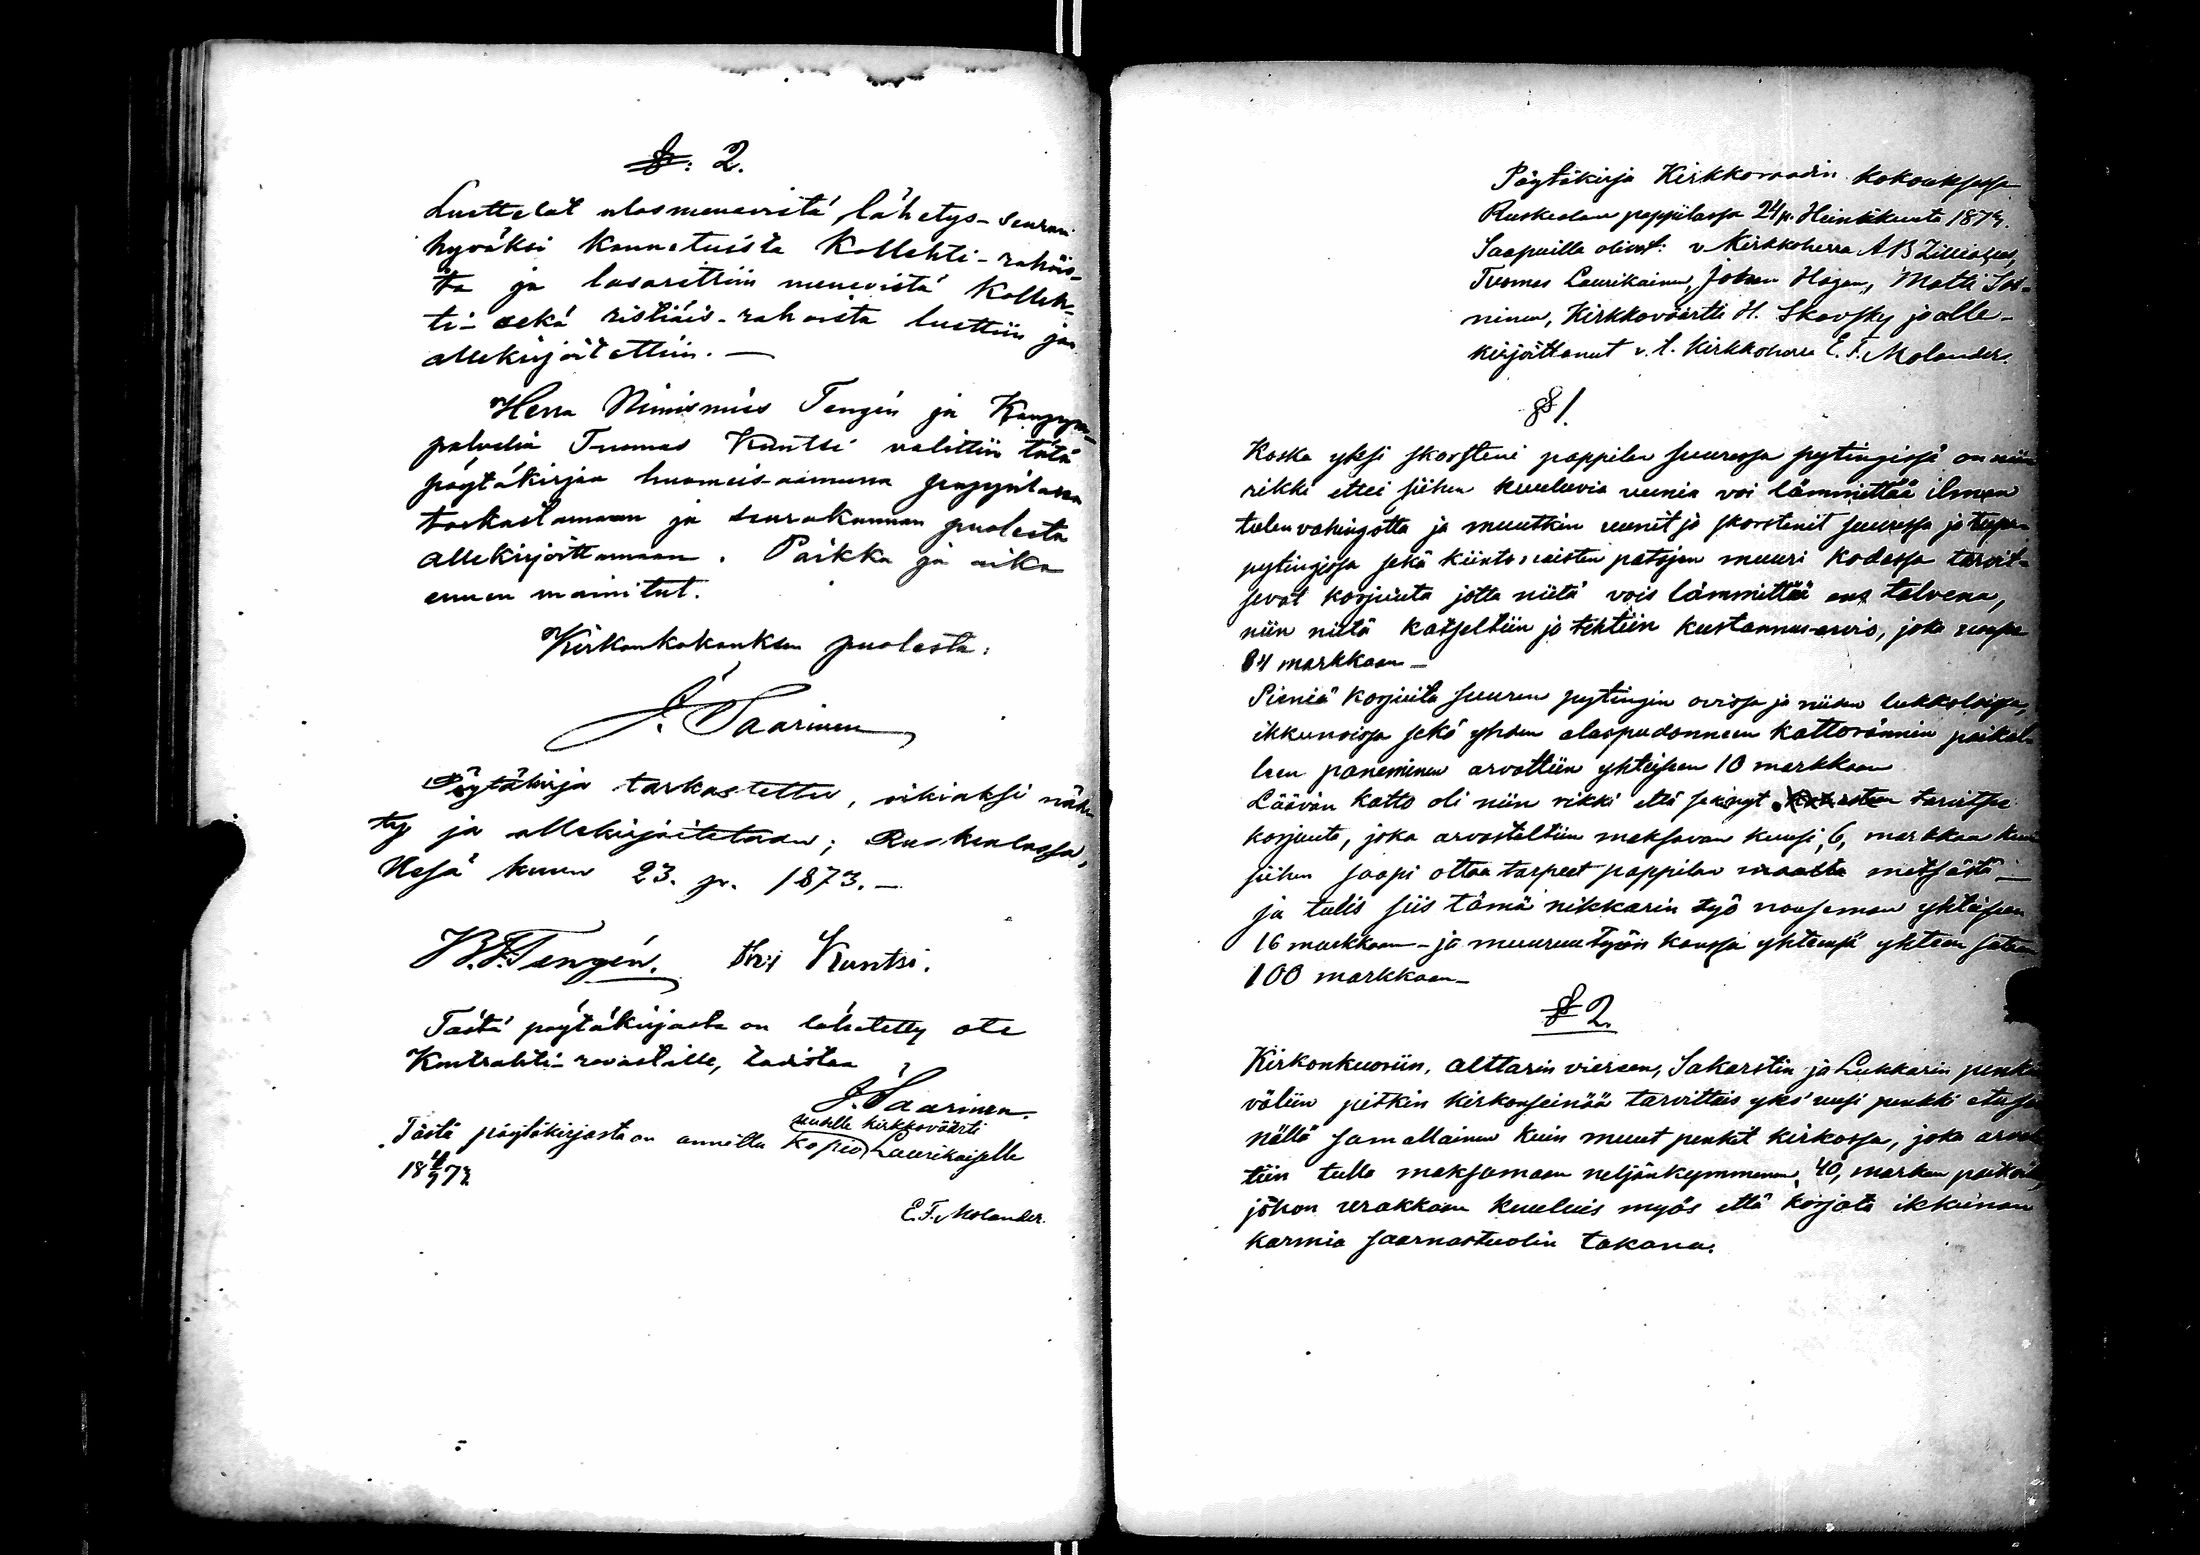 §: 2.
Luettelot ulosmenevistä lähetys-seuran
hyväksi kannetuista Kollehti-rahois-
ta ja lasarettiin menevistä Kolleh-
ti- sekä ristiäis-rahoista luettiin ja
allekirjoitettiin. —
Herra Nimismies Tengén ja
palvelia Tuomas Kuntsi valittiin tätä
pöytäkirjaa huomeis-aamuna pappilassa
tarkastamaan ja seurakunnan puolesta
allekirjoittamaan. Paikka ja aika
ennen mainitut.
Kirkonkokouksen puolesta:
J. Saarinen
Pöytäkirja tarkastettu, oikiaksi näh-
ty ja allekirjoitetaan; Ruskealassa,
Kesä kuun 23. p. 1873. —
Tengén. Kuntsi.
Tästä pöytäkirjasta on lähetetty ote
Kontrahti-rovastille, todistaa
J. Saarinen.
uudelle kirkkoväärti
Tästä pöytäkirjasta on annettu kopio Laurikaiselle
18 73
E. F. Molander.
Pöytäkirja Kirkkoraadin kokouksessa
Ruskealan pappilassa 24 p. Heinäkuuta 1873.
Saapuilla olivat: v Kirkkoherra A B Zilliacus,
Tuomas Laurikainen, Johan Hagan, Matti Sos-
ninen, Kirkkoväärtti H. Skoffsky ja alle-
kirjoittanut v. t. Kirkkoherra E. F. Molander.
§ 1.
Koska yksi skorsteni pappilan suuressa pytingissä on niin
rikki ettei siihen kuuluvia uunia voi lämmittää ilman
tulen vahingotta ja muutkin uunit ja skorstenit suuressa ja tupa-
pytingissa sekä kiinto naisten patojen muuri kodassa tarvit-
sevat korjuuta jotta niitä vois lämmittää ens talvena,
niin niitä katseltiin ja tehtiin kustannus-arvio, joka nousee
84 markkaan —
Pieniä korjuita suuren pytingin ovissa ja niiden lukkoloissa,
ikkunoissa sekä yhden alaspudonneen kattorännin paikal-
leen paneminen arvattiin yhteisen 10 markkaan
Läävän katto oli niin rikki että se nyt tarvitsee
korjuuta, joka arvosteltiin maksavan kuusi, 6, markkaa kun
siihen saapi ottaa tarpeet pappilan maalta metsästä —
ja tulis siis tämä nikkarin työ nousemaan yhteisen
16 markkaan — ja muurun työn kanssa yhteensä yhteen sataan
100 markkaan —
§ 2.
Kirkonkuoriin, alttarin viereen, Sakarstin ja Lukkarin penkin
väliin pitkin kirkonseinää tarvittais yks uusi penkki
nällä samallainen kuin muut penkit kirkossa, joka arvat-
tiin tulla maksamaan neljänkymmenen, 40, markan
johon urakkaan kuuluis myös että korjata ikkunan
karmia saarnastuolin takana.